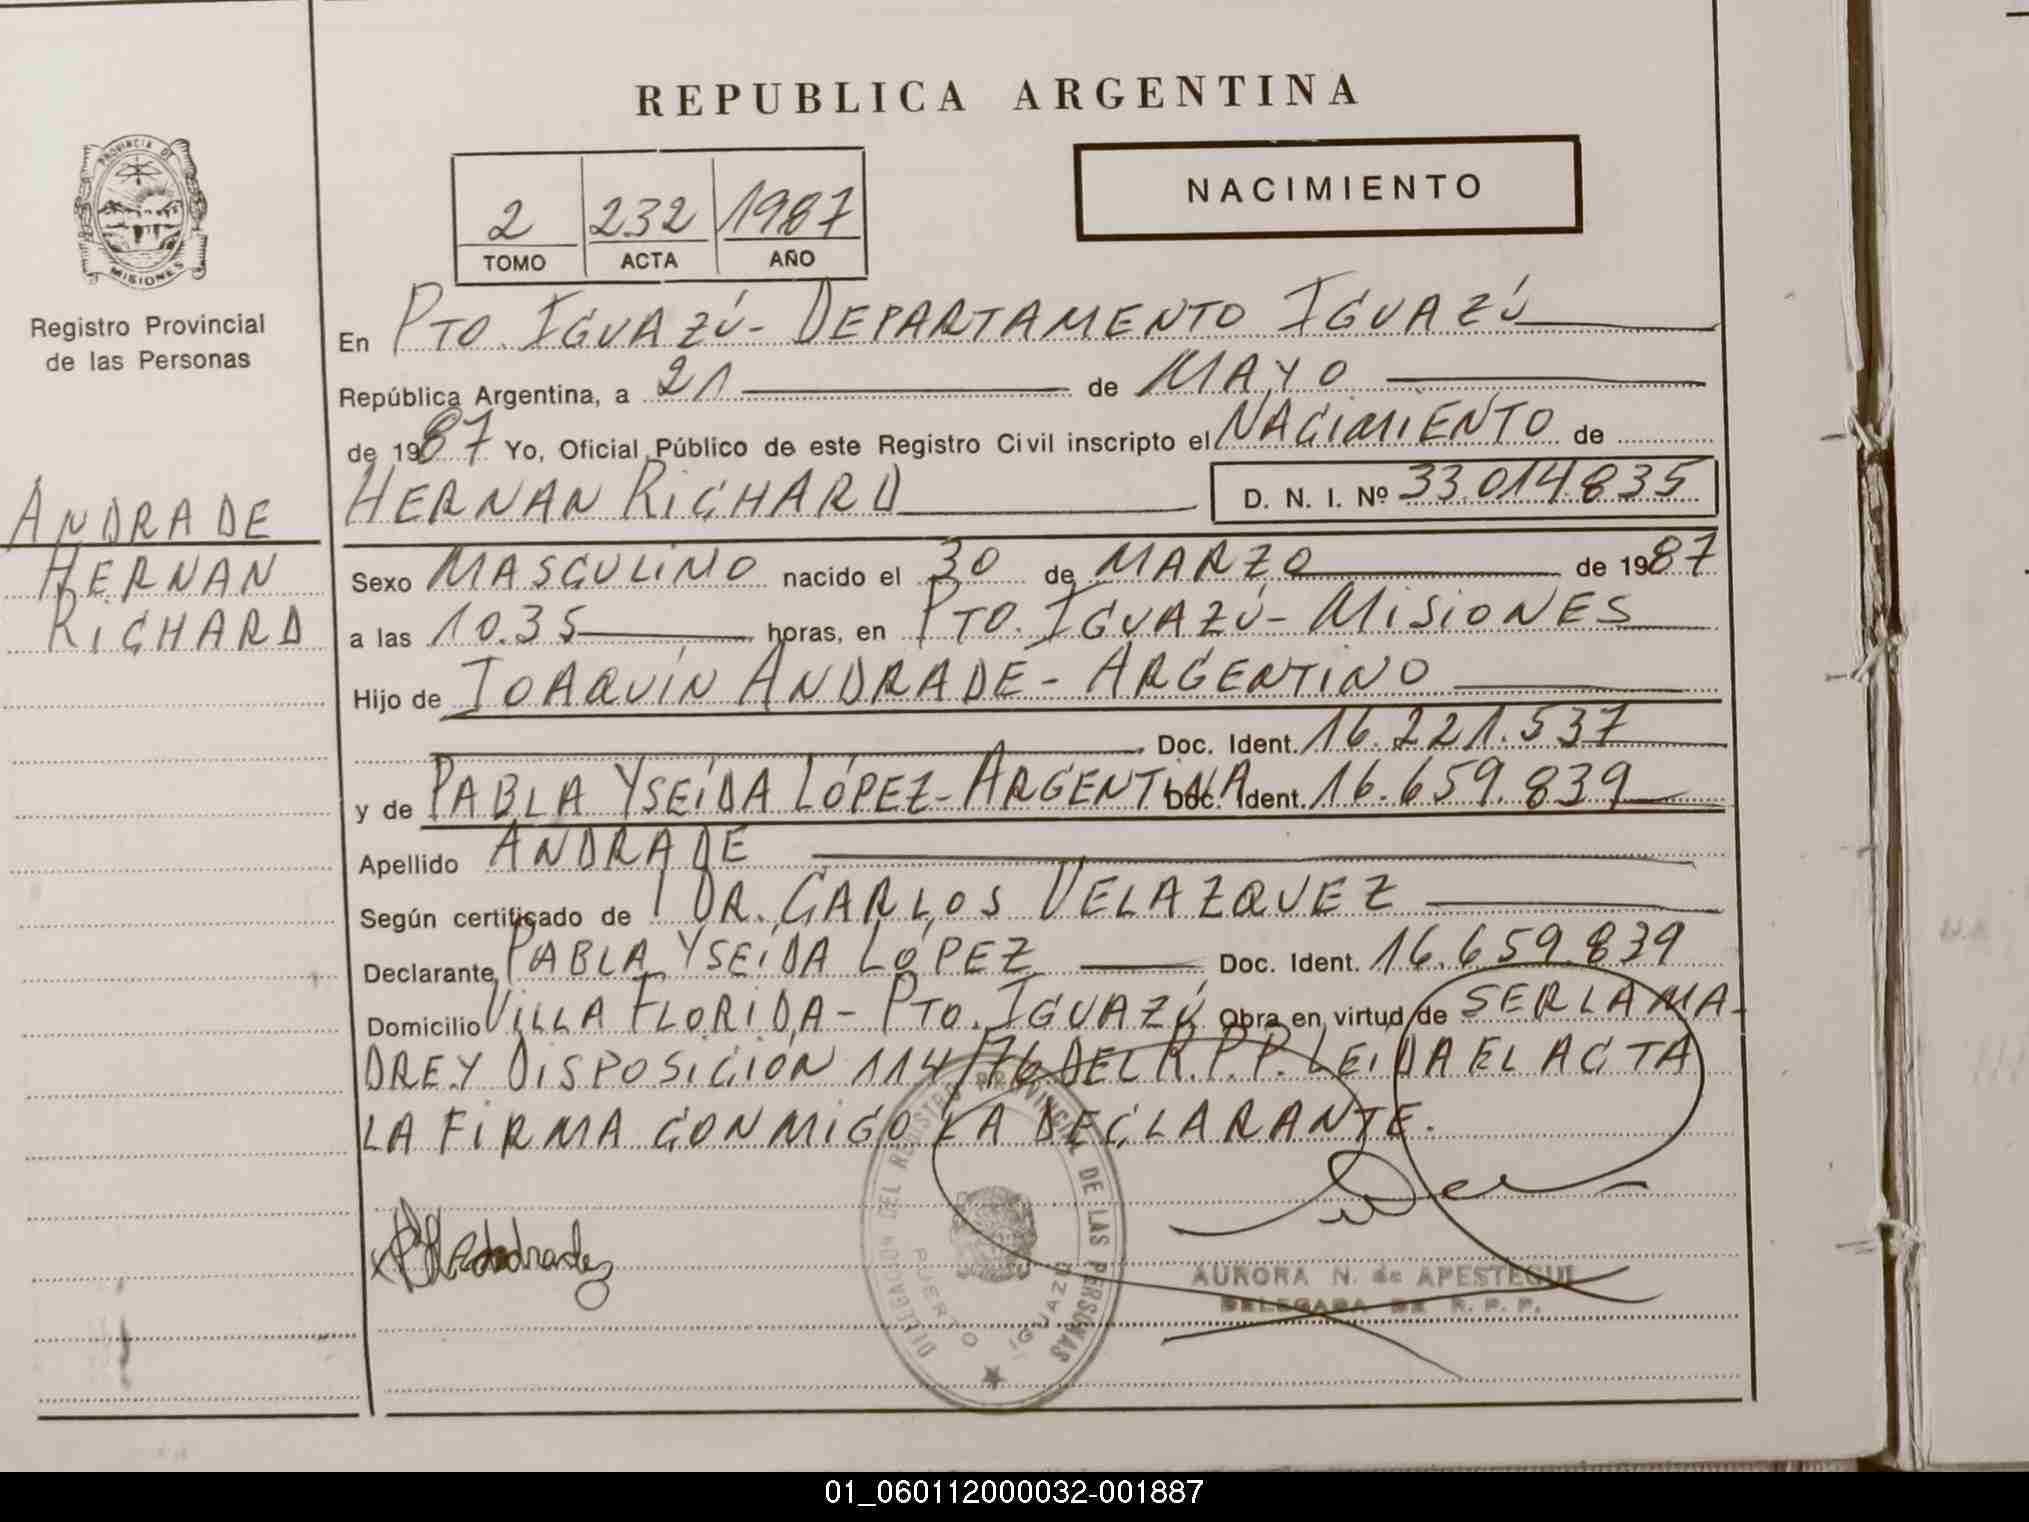 REPUBLICA ARGENTINA
PROVINCIA DE
MISIONES
Registro Provincial
de las Personas
ANDRADE
HERNAN
RICHARD
NACIMIENTO
2 232 1987
TOMO ACTA AÑO
En PTO. IGUAZÚ- DEPARTAMENTO IGUAZÚ
República Argentina, a 21 de MAYO
de 1987 Yo, Oficial Público de este Registro Civil inscripto el NACIMIENTO de
HERNAN RICHARD D. N. I. Nº 33.014.835
Sexo MASCULINO nacido el 30 de MARZO de 1987
a las 10.35 horas, en PTO. IGUAZÚ- MISIONES
Hijo de JOAQUÍN ANDRADE- ARGENTINO
Doc. Ident. 16.221.537
y de PABLA YSEÍDA LÓPEZ- ARGENTINA Doc. Ident. 16.659.839
Apellido ANDRADE
Según certificado de DR. CARLOS VELAZQUEZ
Declarante PABLA YSEÍDA LÓPEZ Doc. Ident. 16.659.839
Domicilio VILLA FLORIDA- PTO. IGUAZÚ Obra en virtud de SER LA MA-
DRE Y DISPOSICIÓN 114/76 DEL R.P.P. LEIDA EL ACTA
LA FIRMA CONMIGO LA DECLARANTE.
DELEGACION DEL REGISTRO PROVINCIAL DE LAS PERSONAS
PUERTO IGUAZU
AURORA N. de APESTEGUI
DELEGADA DE R. P. P.
01_060112000032-001887